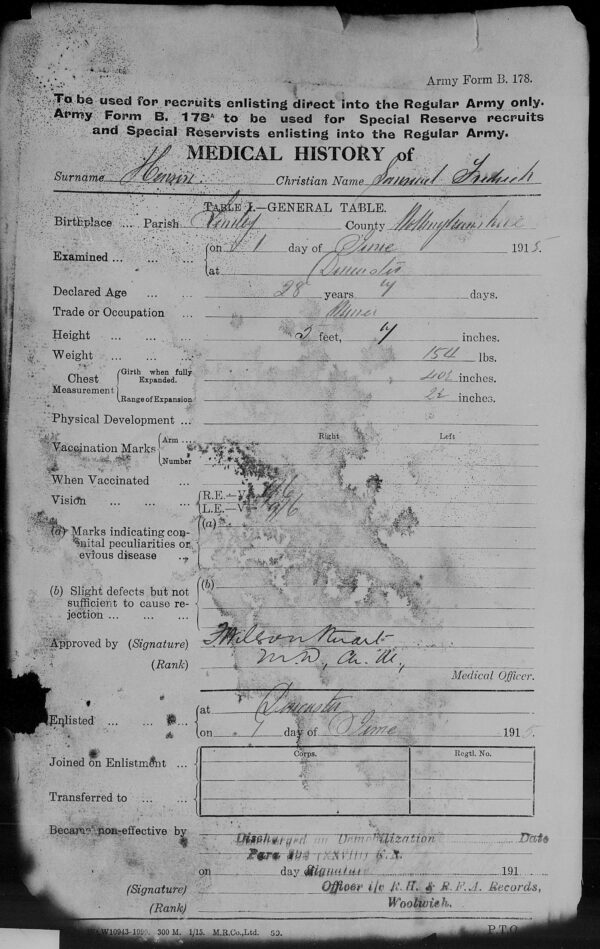 Army Form B. 178.
To be used for recruits enlisting direct into the Regular Army only.
Army Form B. 178A to be used for Special Reserve recruits
and Special Reservists enlisting into the Regular Army.
MEDICAL HISTORY of
Surname Christian Name
TABLE I.—GENERAL TABLE.
Birthplace ... Parish County Nottinghamshire
Examined ... ... ... on 1 day of June 1915.
at Doncaster
Declared Age ... ... 28 years 7 days.
Trade or Occupation ... Miner
Height ... ... ... 5 feet, 7 inches.
Weight ... ... ... 154 lbs.
Chest Measurement Girth when fully Expanded. inches.
Range of Expansion inches.
Physical Development ...
Right Left
Vaccination Marks Arm ...
Number
When Vaccinated ...
Vision ... ... ... R.E.—V= 6/6
L.E.—V= 6/6
(a) Marks indicating con- (a)
nital peculiarities or
evious disease ...
(b) Slight defects but not (b)
sufficient to cause re-
jection ... ... ...
Approved by (Signature) Wilson
(Rank) M.D., Ch. M.,
Medical Officer.
Enlisted ... ... ... at Doncaster
on 1 day of June 1915.
Corps. Regtl. No.
Joined on Enlistment ...
Transferred to ... ...
Became non-effective by Discharged on Demobilization Date
Para 392 (XXVIII) K.R.
on day Signature 191
(Signature) Officer i/c R.H. & R.F.A. Records,
(Rank) Woolwich.
300 M. 1/15. M.R.Co.,Ltd. P.T.O.